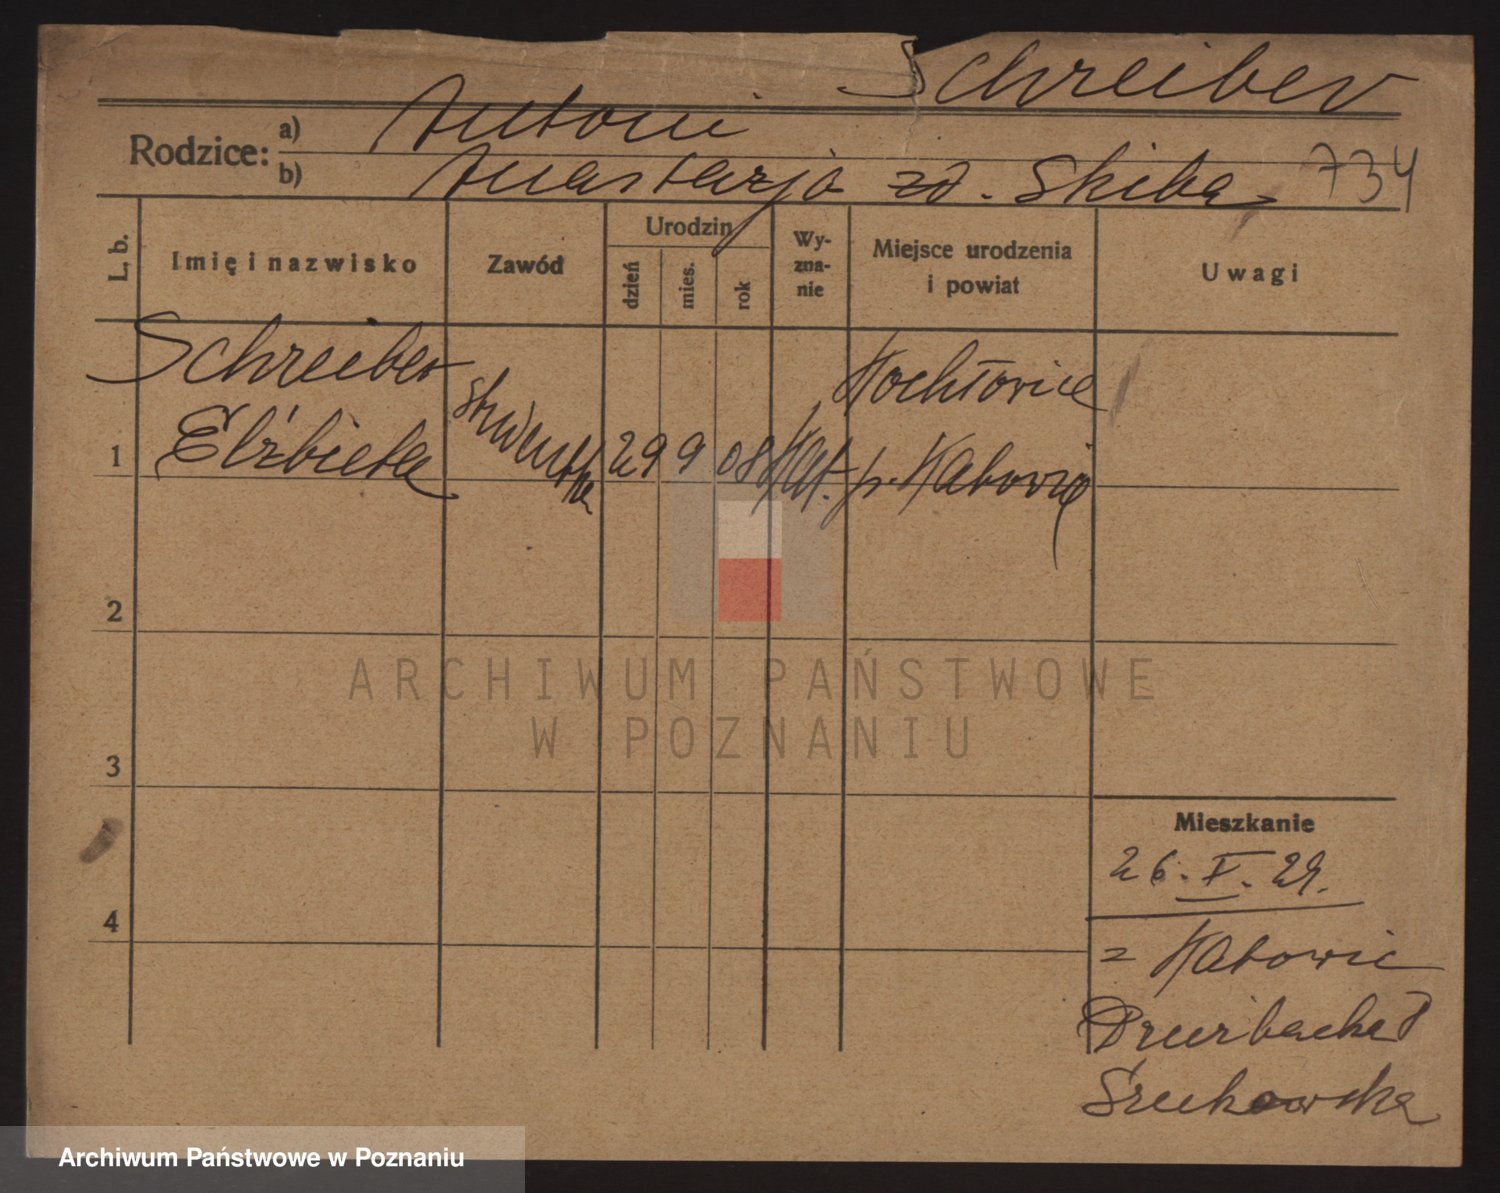 Schreiber
Rodzice:
a) Antoni
b) Anastazja zd. Skiba 734
L. b.
Imię i nazwisko
Zawód
Urodzin
dzień
mies.
rok
Wy-
zna-
nie
Miejsce urodzenia
i powiat
Uwagi
Schreiber
Elżbieta
1
studentka
29
9
08
Kat.
Kochłovice
p. Katovice
2
3
4
Mieszkanie
26. V. 29.
z Katowic
ARCHIWUM PAŃSTWOWE
W POZNANIU
Archiwum Państwowe w Poznaniu